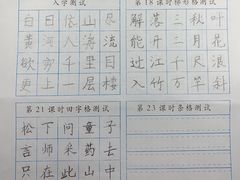 入学测试
白日依山尽
黄河入海流
欲穷千里目
更上一层楼
第18课梯形格测试
解落三秋叶
能开二月花
过江千尺浪
入竹万竿斜
第21课田字格测试
松下问童子
言师采药去
只在此山中
第23课条格测试